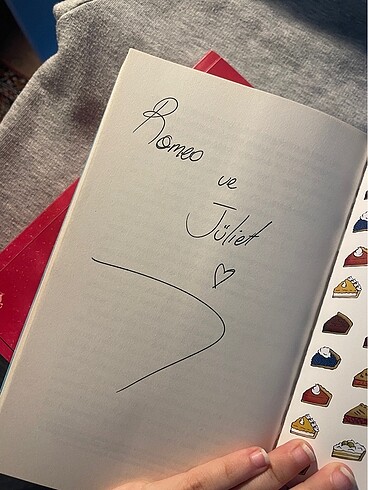 Romeo
ve
Jüliet